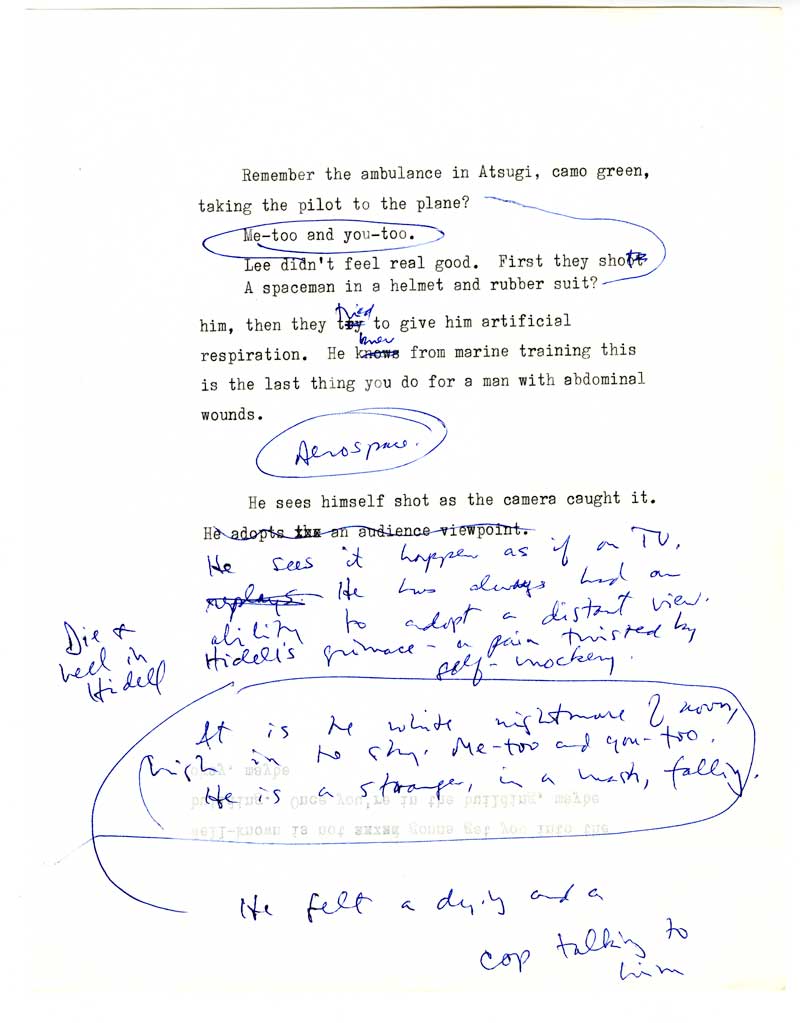 Remember the ambulance in Atsugi, camo green,
taking the pilot to the plane?
Me-too and you-too.
Lee didn't feel real good. First they shot
A spaceman in a helmet and rubber suit?
tried
him, then they try to give him artificial
knew
respiration. He knows from marine training this
is the last thing you do for a man with abdominal
wounds.
Aerospace.
He sees himself shot as the camera caught it.
He adopts xxx an audience viewpoint.
He sees it happen as if on TV.
replays. He has always had an
ability to adopt a distant view.
Die &
heel in
Hidell
Hidell's grimace - a pain twisted by
self-mockery.
It is the white nightmare of noon,
high in the sky. Me-too and you-too.
He is a stranger, in a mask, falling.
okay. maybe
building. Once you're in the building, maybe
well-known is not gonna get you into the
He felt a and a
cop talking to
him